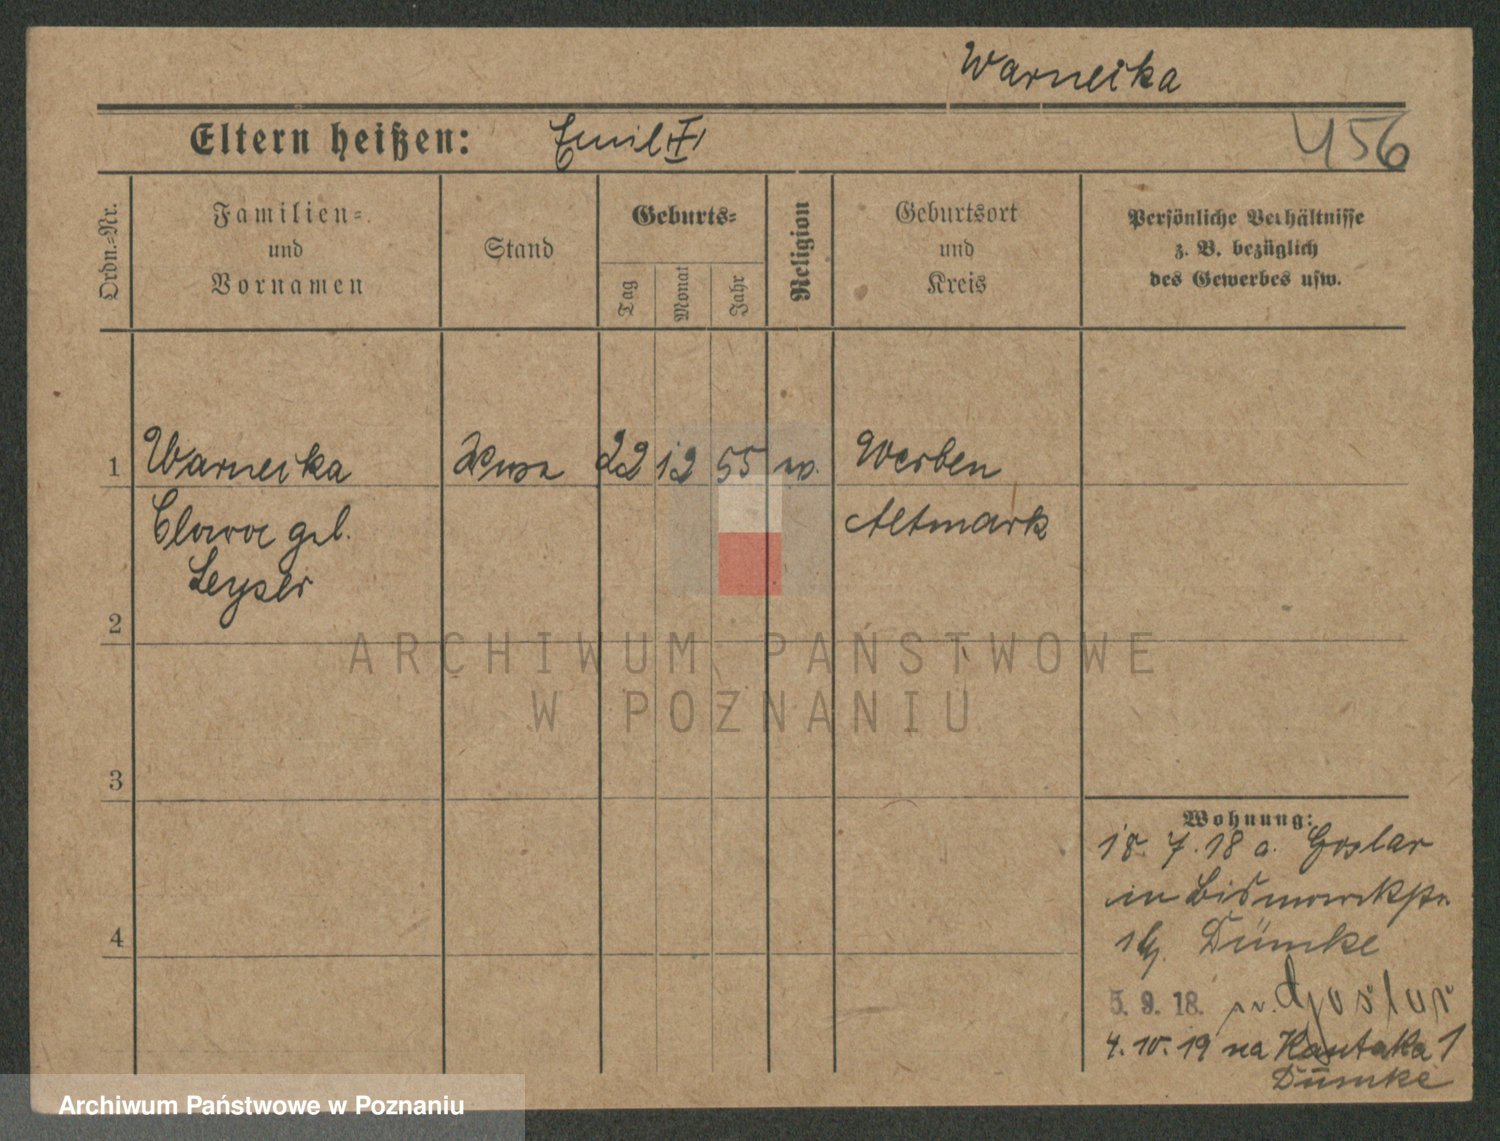 Warneika
Eltern heißen: Emil
456
Ordn.-Nr.
Familien-
und
Vornamen
Stand
Geburts-
Tag
Monat
Jahr
Religion
Geburtsort
und
Kreis
Persönliche Verhältnisse
z. B. bezüglich
des Gewerbes usw.
1 Warneika 22 12 55 Werben
Clara geb. Altmark
Leyser
2
3
4
Wohnung:
18. 7. 18 a. Goslar
in Bismarckstr.
Dümke
5. 9. 18. Goslar
4. 10. 19 na Kantaka 1
Dümke
ARCHIWUM PAŃSTWOWE
W POZNANIU
Archiwum Państwowe w Poznaniu